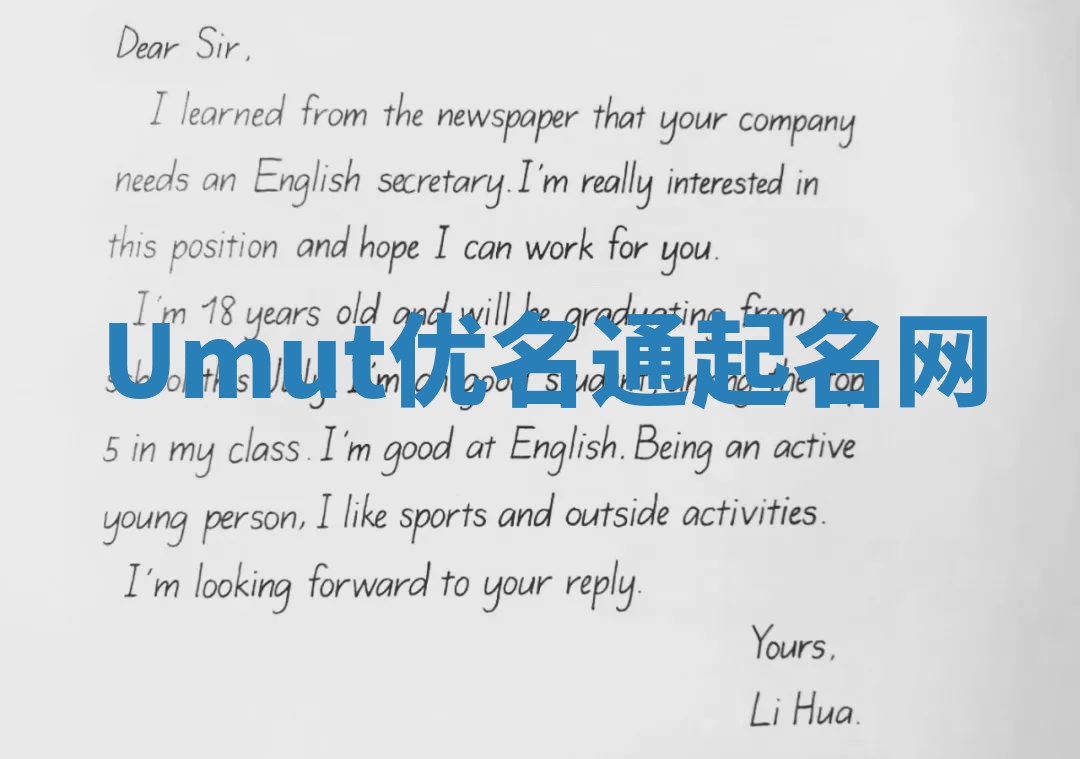 Dear Sir,
I learned from the newspaper that your company
needs an English secretary. I'm really interested in
this position and hope I can work for you.
I'm 18 years old and will be graduating from xx
Umut优名通起名网
school this July. I'm a good student, among the top
5 in my class. I'm good at English. Being an active
young person, I like sports and outside activities.
I'm looking forward to your reply.
Yours,
Li Hua.